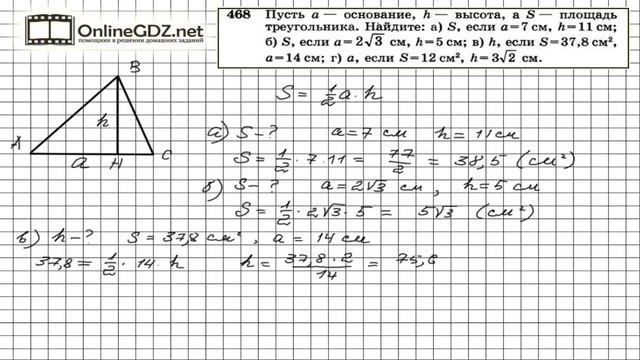 OnlineGDZ.com
помощник в решении домашних заданий
468 Пусть a — основание, h — высота, а S — площадь
треугольника. Найдите: а) S, если a=7 см, h=11 см;
б) S, если a=2√3 см, h=5 см; в) h, если S=37,8 см²,
a=14 см; г) a, если S=12 см², h=3√2 см.
B
h
A a H C
S = 1/2 a · h
а) S – ? a = 7 см h = 11 см
S = 1/2 · 7 · 11 = 77/2 = 38,5 (см²)
б) S – ? a = 2√3 см , h = 5 см
S = 1/2 · 2√3 · 5 = 5√3 (см²)
в) h – ? S = 37,8 см² , a = 14 см
37,8 = 1/2 · 14 · h h = 37,8 · 2/14 = 75,6